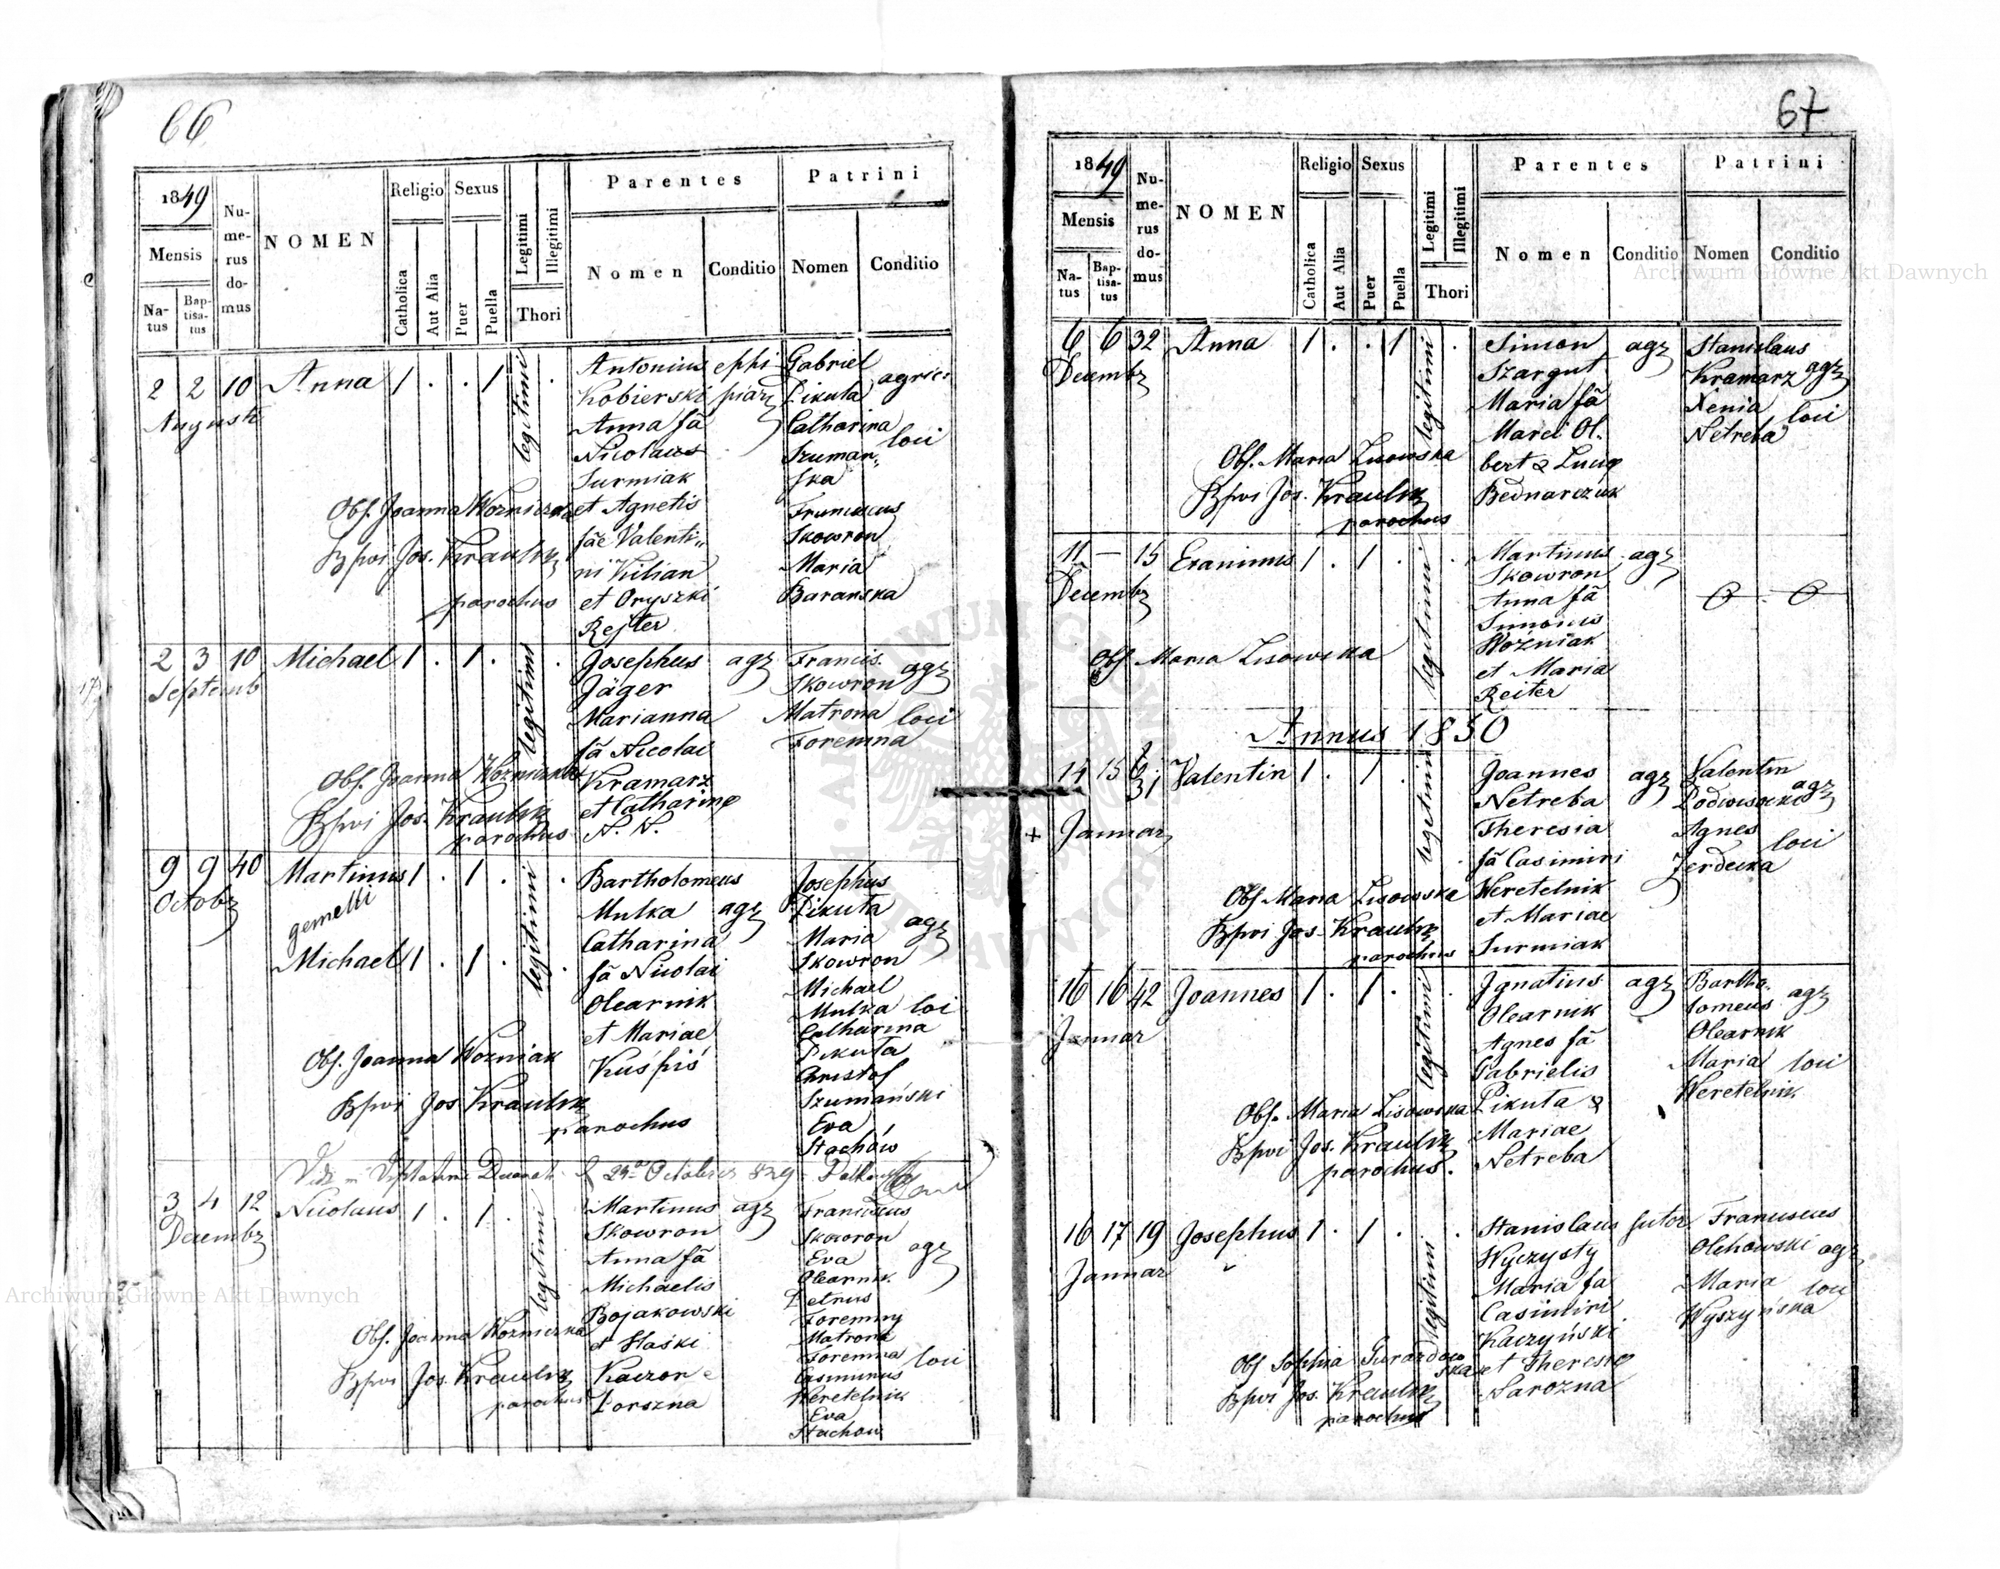 66
1849
Mensis
Natus
Baptisatus
Numerus domus
NOMEN
Religio
Catholica
Aut Alia
Sexus
Puer
Puella
Legitimi
Illegitimi
Thori
Parentes
Nomen
Conditio
Patrini
Nomen
Conditio
2 2 10 Anna 1 . . 1 legitimi .
Augusti
Antonius
Kobierski
Anna fã
Nicolaus
Surmiak
et Agnetis
fãe Valenti„
ni Kilian
et Oryszki
Rejter
ephi
piarz
Gabriel
Pikuta
Catharina
Szuman„
ska
Franciscus
Skowron
Maria
Baranska
agric:
loci
Obs. Joanna Wozniczka
Bpvi Jos. Kraulik
parochus
2 3 10 Michael 1 . 1 . legitimi .
Septemb
Josephus agr
Jäger
Marianna
fã Nicolai
Kramarz
et Catharinę
N. N.
Francis.
Skowron agr
Matrona loci
Foremna
Obs. Joanna Wozniczka
Bpvi Jos. Kraulik
parochus
9 9 40 Martinus 1 . 1 . legitimi .
Octobr
gemelli
Michael 1 . 1 . .
Bartholomeus
Mulka agr
Catharina
fã Nicolai
Olearnik
et Mariae
Kuśpiś
Josephus
Pikuta
Maria agr
Skowron
Michael
Mulka loci
Catharina
Pikuta
Christof
Szumański
Eva
Stachów
Obs. Joanna Wozniak
Bpvi Jos Kraulik
parochus
24 Octobris
3 4 12 Nicolaus 1 . 1 . legitimi
Decembr
Martinus agr
Skowron
Anna fã
Michaelis
Bojakowski
et Staski
Kaczon
Porszna
Franciscus
Skowron
Eva agr
Olearnik
Petrus
Foremny
Matrona
Foremna loci
Casimirus
Weretelnik
Eva
Stachow
Obs. Joanna Wozniczka
Bpvi Jos. Kraulik
parochus
67
1849
Mensis
Natus
Baptisatus
Numerus domus
NOMEN
Religio
Catholica
Aut Alia
Sexus
Puer
Puella
Legitimi
Illegitimi
Thori
Parentes
Nomen
Conditio
Patrini
Nomen
Conditio
6 6 32 Anna 1 . . 1 legitimi .
Decembr
Simon agr
Szargut
Maria fã
Marci Ol.
bert & Lucię
Bednarczuk
Stanislaus
Kramarz agr
Xenia loci
Netreba
Obs. Maria Lisowska
Bpvi Jos. Kraulik
parochus
11 — 15 Eranimus 1 . 1 . legitimi .
Decembr
Martinus agr
Skowron
Anna fã
Simonis
Woźniak
et Maria
Reiter
Obs Maria Lisowska
Annus 1850
14 15 31 Valentin 1 . 1 . legitimi
+ Januar
Joannes agr
Netreba
Theresia
fã Casimiri
Weretelnik
et Mariae
Surmiak
Valentin
Podwisocki agr
Agnes loci
Jerdecka
Obs Maria Lisowska
Bpvi Jos. Kraulik
parochus
16 16 42 Joannes 1 . 1 . legitimi
Januar
Ignatius agr
Olearnik
Agnes fã
Gabrielis
Pikuta &
Mariae
Netreba
Bartho.
lomeus agr
Olearnik
Maria loci
Weretelnik
Obs. Maria Lisowska
Bpvi Jos. Kraulik
parochus.
16 17 19 Josephus 1 . 1 . legitimi .
Januar
Stanislaus sutor
Wyczysty
Maria fa
Casimiri
Kaczyński
et Theresię
Sarozna
Franciscus
Olchowski agr
Maria loci
Wyszyńska
Obs Sophia Gurardow
ska
Bpvi Jos. Kraulik
parochus
Archiwum Główne Akt Dawnych
Archiwum Główne Akt Dawnych